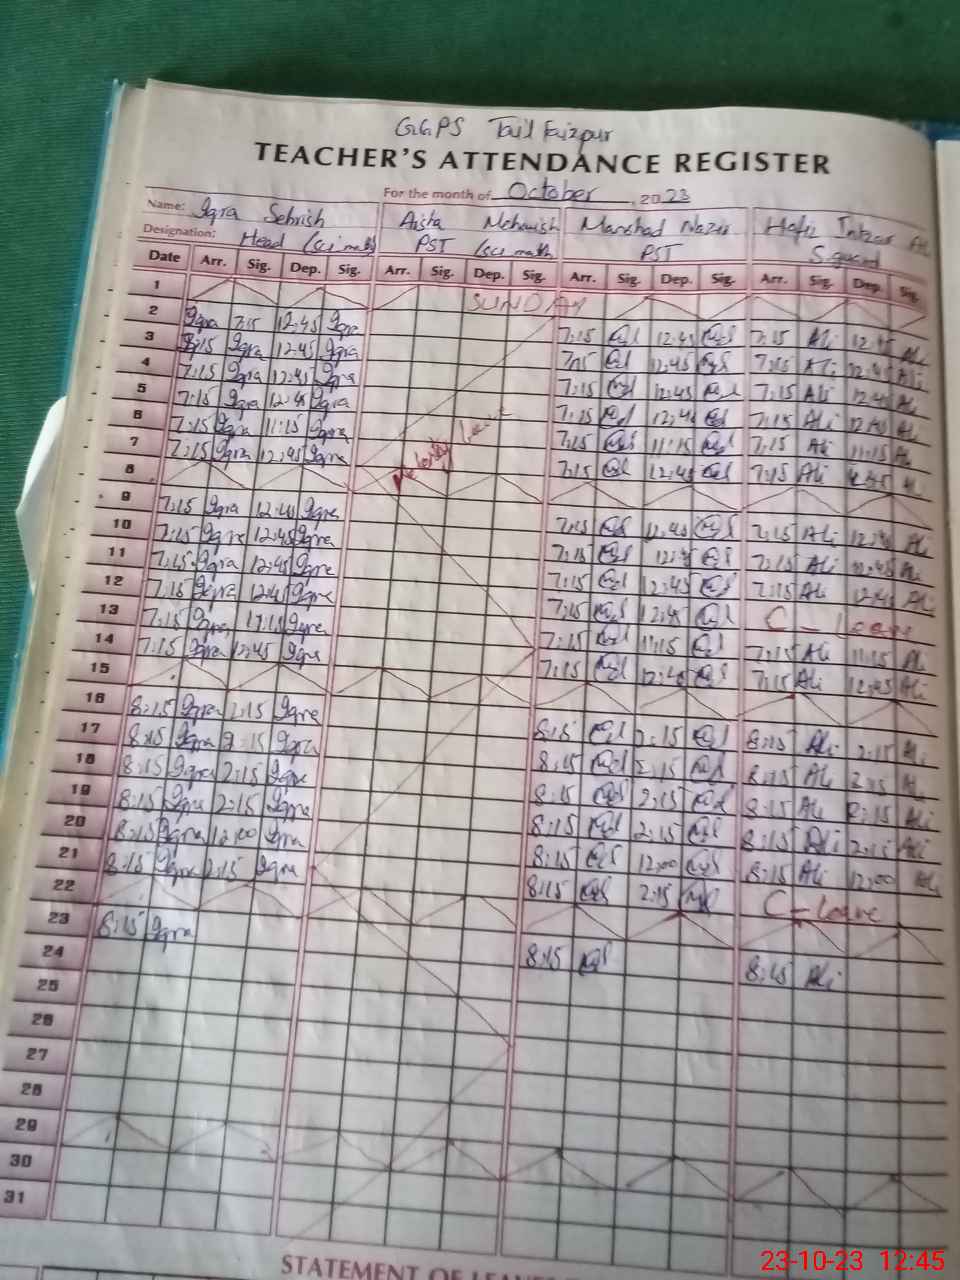 GGPS Tail Faizpur
TEACHER'S ATTENDANCE REGISTER
For the month of October, 2023
Name: Iqra Sehrish Aisha Mehwish Manshad Nazir Hafiz Intzar Ali
Designation: Head (sci math) PST (sci math) PST S.guard
Date Arr. Sig. Dep. Sig. Arr. Sig. Dep. Sig. Arr. Sig. Dep. Sig. Arr. Sig. Dep. Sig.
1 SUNDAY
2 Iqra 7:15 12:45 Iqra 7:15 12:45 7:15 Ali 12:45 Ali
3 8:15 Iqra 12:45 Iqra 7:15 12:45 7:15 Ali 12:45 Ali
4 7:15 Iqra 12:45 Iqra 7:15 12:45 7:15 Ali 12:45 Ali
5 7:15 Iqra 12:45 Iqra 7:15 12:45 7:15 Ali 12:45 Ali
6 7:15 Iqra 11:15 Iqra Maternity Leave 7:15 11:15 7:15 Ali 11:15 Ali
7 7:15 Iqra 12:45 Iqra 7:15 12:45 7:15 Ali Ali
8
9 7:15 Iqra 12:45 Iqra 7:15 12:45 7:15 Ali 12:45 Ali
10 7:15 Iqra 12:45 Iqra 7:15 12:45 7:15 Ali 12:45 Ali
11 7:15 Iqra 12:45 Iqra 7:15 12:45 7:15 Ali 12:45 Ali
12 7:15 Iqra 12:45 Iqra 7:15 12:45 C-Leave
13 7:15 Iqra 11:15 Iqra 7:15 11:15 7:15 Ali 11:15 Ali
14 7:15 Iqra 12:45 Iqra 7:15 12:45 7:15 Ali 12:45 Ali
15
16 8:15 Iqra 2:15 Iqra 8:15 2:15 8:15 Ali 2:15 Ali
17 8:15 Iqra 2:15 Iqra 8:15 2:15 8:15 Ali 2:15 Ali
18 8:15 Iqra 2:15 Iqra 8:15 2:15 8:15 Ali 2:15 Ali
19 8:15 Iqra 2:15 Iqra 8:15 2:15 8:15 Ali 2:15 Ali
20 8:15 Iqra 12:00 Iqra 8:15 12:00 8:15 Ali 12:00 Ali
21 8:15 Iqra 2:15 Iqra 8:15 2:15 C-Leave
22
23 8:15 Iqra 8:15 8:15 Ali
24
25
26
27
28
29
30
31
STATEMENT OF
23-10-23 12:45